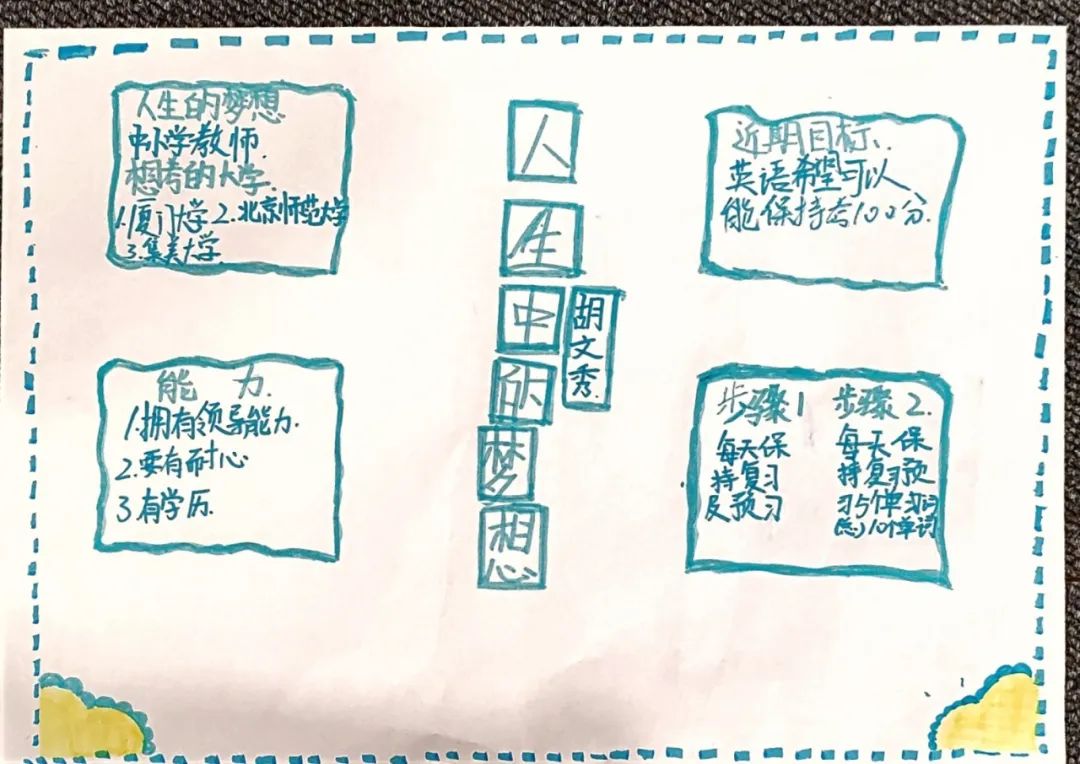 人生的梦想
中小学教师.
想考的大学.
1.厦门大学 2.北京师范大学
3.集美大学
人
生
中
的
梦
想
胡
文
秀
近期目标、
英语希望可以
能保持考100分.
能 力.
1.拥有领导能力.
2.要有耐心
3.有学历.
步骤1
每天保
持复习
及预习
步骤2.
每天保
持复习预
习5个单词
10个单词